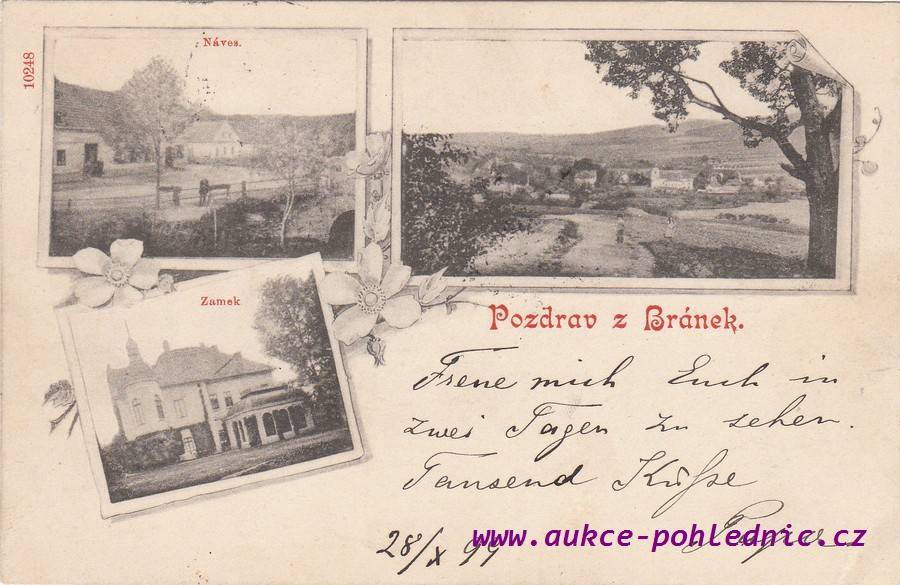 10248
Náves.
Zamek
Pozdrav z Bránek.
Frene mich Euch in
zwei Tagen zu sehen.
Tausend Küsse
28/X 99
www.aukce-pohlednic.cz